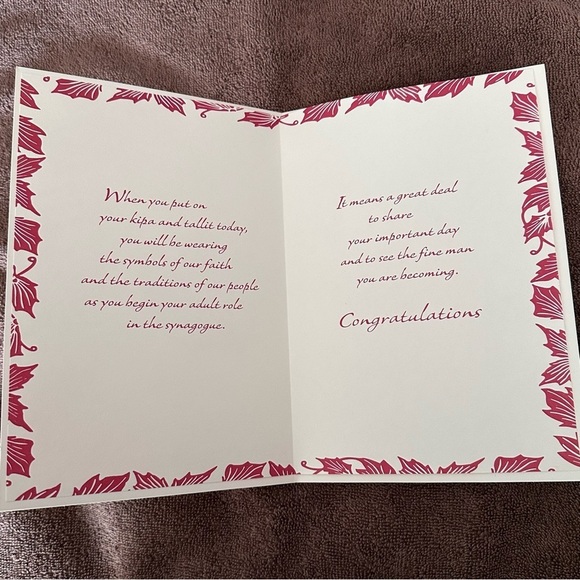 When you put on
your kipa and tallit today,
you will be wearing
the symbols of our faith
and the traditions of our people
as you begin your adult role
in the synagogue.
It means a great deal
to share
your important day
and to see the fine man
you are becoming.
Congratulations